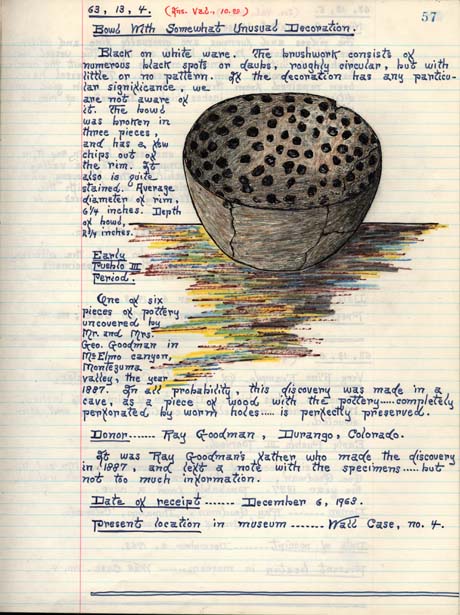 63, 13, 4. (Ins. Val., 10.00)
57
Bowl With Somewhat Unusual Decoration.
Black on white ware. The brushwork consists of
numerous black spots or daubs, roughly circular, but with
little or no pattern. If the decoration has any particu-
lar significance, we
are not aware of
it. The bowl
was broken in
three pieces,
and has a few
chips out of
the rim. It
also is quite
stained. Average
diameter of rim,
6 1/4 inches. Depth
of bowl,
inches.
Early
Pueblo III
Period.
One of six
pieces of pottery
uncovered by
Mr. and Mrs.
Geo. Goodman in
McElmo canyon,
Montezuma
valley, the year
1887. In all probability, this discovery was made in a
cave, as a piece of wood with the pottery.....completely
perforated by worm holes..... is perfectly preserved.
Donor....... Ray Goodman, Durango, Colorado.
It was Ray Goodman's father who made the discovery
in 1887, and left a note with the specimens.....but
not too much information.
Date of receipt ....... December 6, 1963.
Present location in museum ....... Wall Case, no. 4.